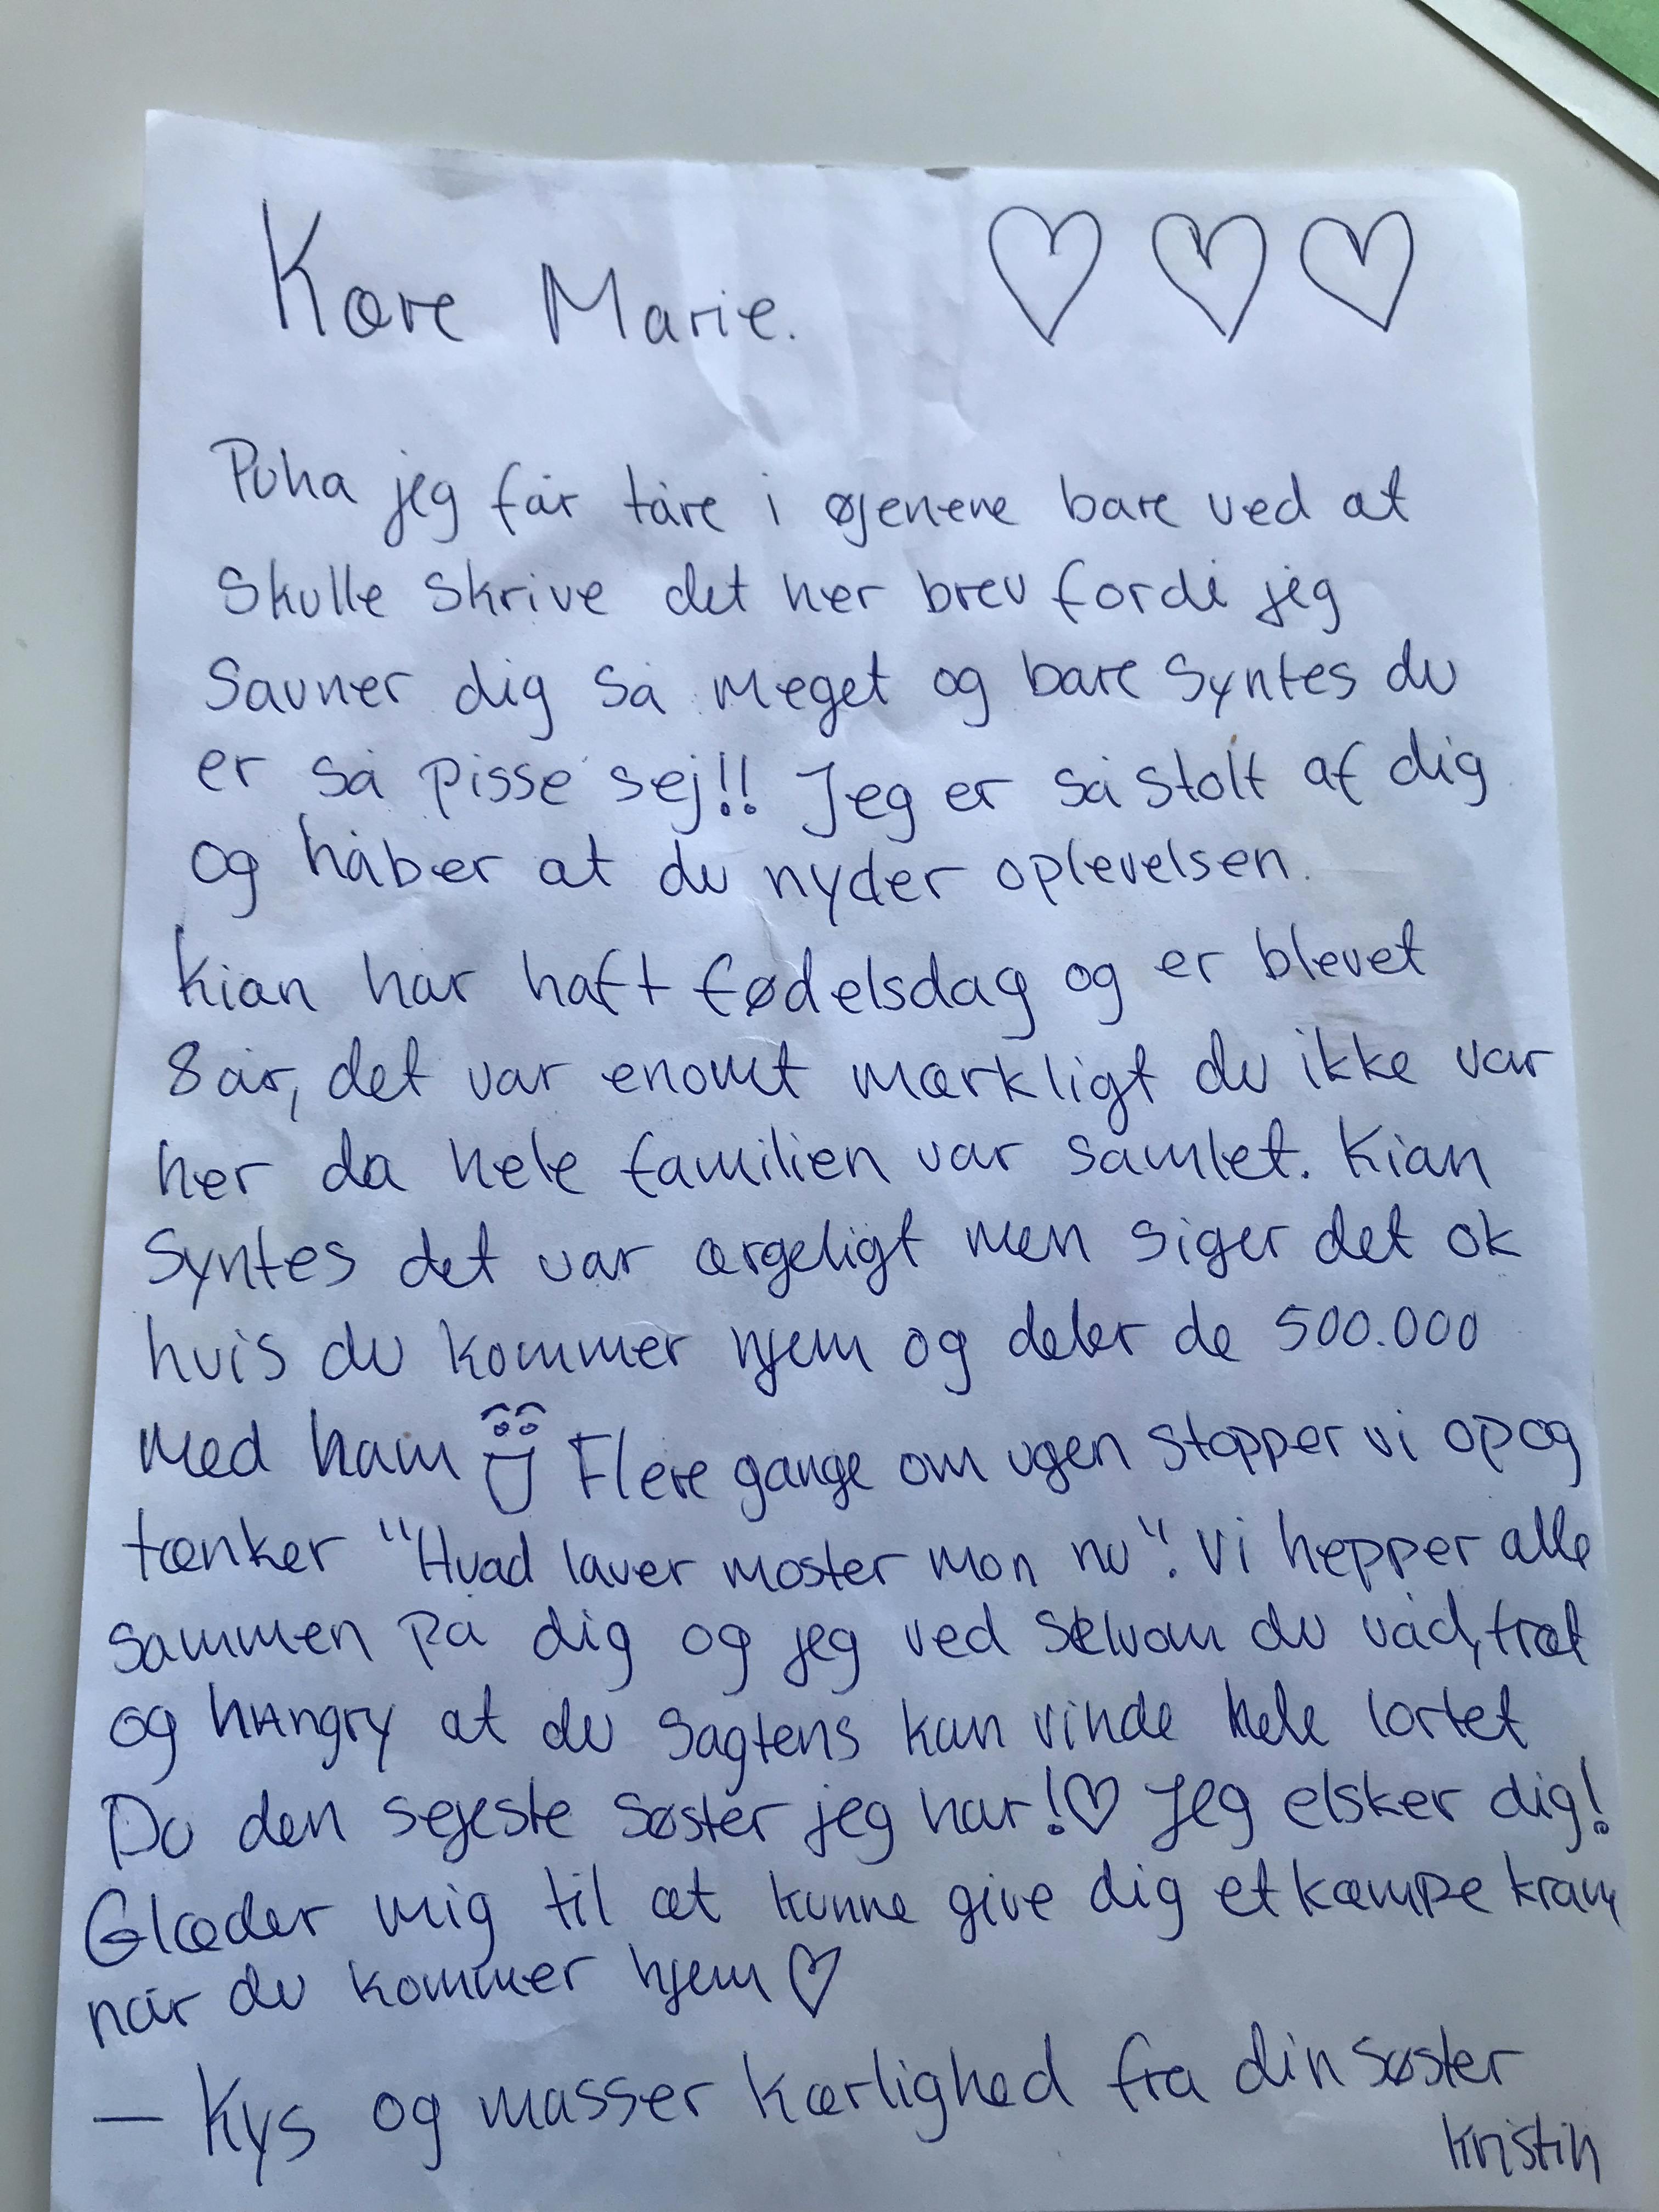 Kære Marie. ♡ ♡ ♡
Puha jeg får tåre i øjenene bare ved at
skulle skrive det her brev fordi jeg
savner dig så meget og bare syntes du
er så pisse sej!! Jeg er så stolt af dig
og håber at du nyder oplevelsen.
Kian har haft fødelsdag og er blevet
8 år, det var enomt mærkligt du ikke var
her da hele familien var samlet. Kian
syntes det var ærgeligt men siger det ok
hvis du kommer hjem og deler de 500.000
med ham Flere gange om ugen stopper vi op og
tænker "Hvad laver moster mon nu". Vi hepper alle
sammen på dig og jeg ved selvom du våd, træt
og hAngry at du sagtens kan vinde hele lortet
Du den sejeste søster jeg har!♡ Jeg elsker dig!
Glæder mig til at kunne give dig et kæmpe kram
når du kommer hjem ♡
— Kys og masser kærlighed fra din søster
Kristin